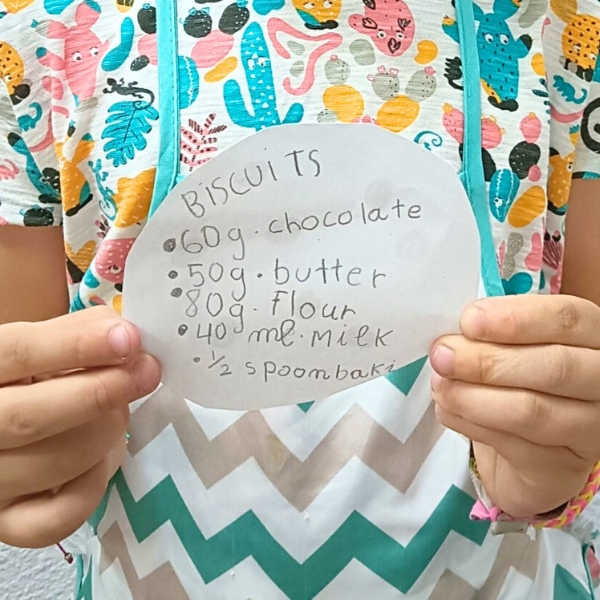 BiSCUiTS
• 60g. chocolate
• 50g. butter
• 80g. Flour
• 40 ml. MilK
• 1/2 spoon baki